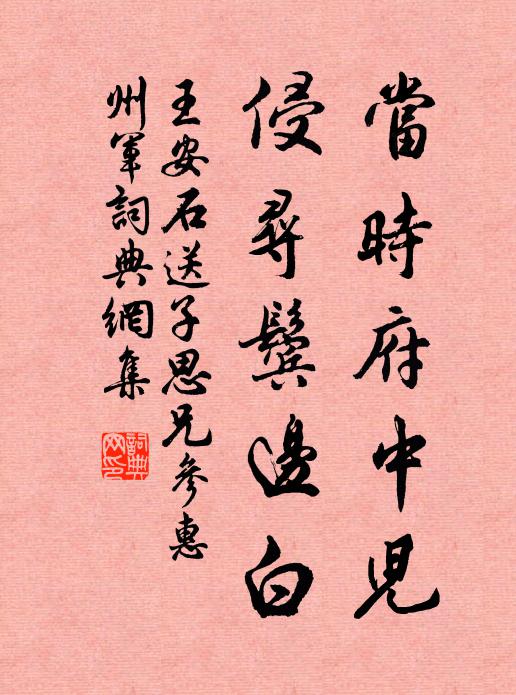 當時府中兒
侵尋鬢邊白
王安石送子思兄參惠
州軍詞典網集
詞典网印